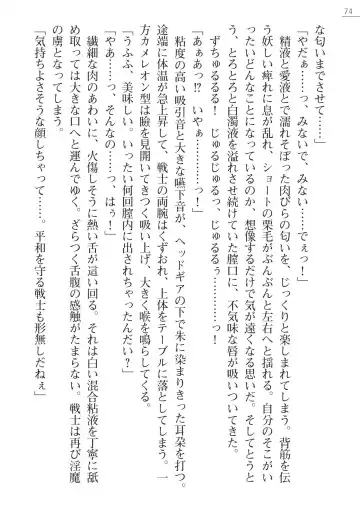 74
な匂いまでさせて……」
「やだぁ……っ、みないで、みないで……でぇっ！
　精液と愛液とで濡れそぼった肉びらの匂いを、じっくりと楽しまれてしまう。背筋を伝
う妖しい痺れに息が乱れ、ショートの栗毛がぶんぶんと左右へと揺れる。自分のそこがい
ったいどんなことになっているのか、想像するだけで気が遠くなる思いだ。そしてとうと
う、とろとろと白濁液を溢れさせ続けていた膣口に、不気味な唇が吸いついてきた。
　ずちゅるるるっ！　じゅるじゅるっ、じゅるるぅ…………っ！
「あぁあっ⁉　いやぁ…………っ！」
　粘度の高い吸引音と大きな嚥下音が、ヘッドギアの下で朱に染まりきった耳朶を打つ。
途端に体温が急上昇して、戦士の両腕はくずおれ、上体をテーブルに落としてしまう。一
方カメレオン型は瞼を見開いてきつく吸い上げ、大きく喉を鳴らしてくる。
「うふふ、美味しい。いったい何回膣内に出されちゃったんだい？」
「やあ……っ、そんなの……っ」
　繊細な肉のあわいに、火傷しそうに熱い舌が這い回る。それは白い混合粘液を丁寧に舐
め取っては大きな口へと運んでゆく。ざらつく舌腹の感触がたまらない。戦士は再び淫魔
の虜となってしまう。
「気持ちよさそうな顔しちゃって……。平和を守る戦士も形無しだねぇ」